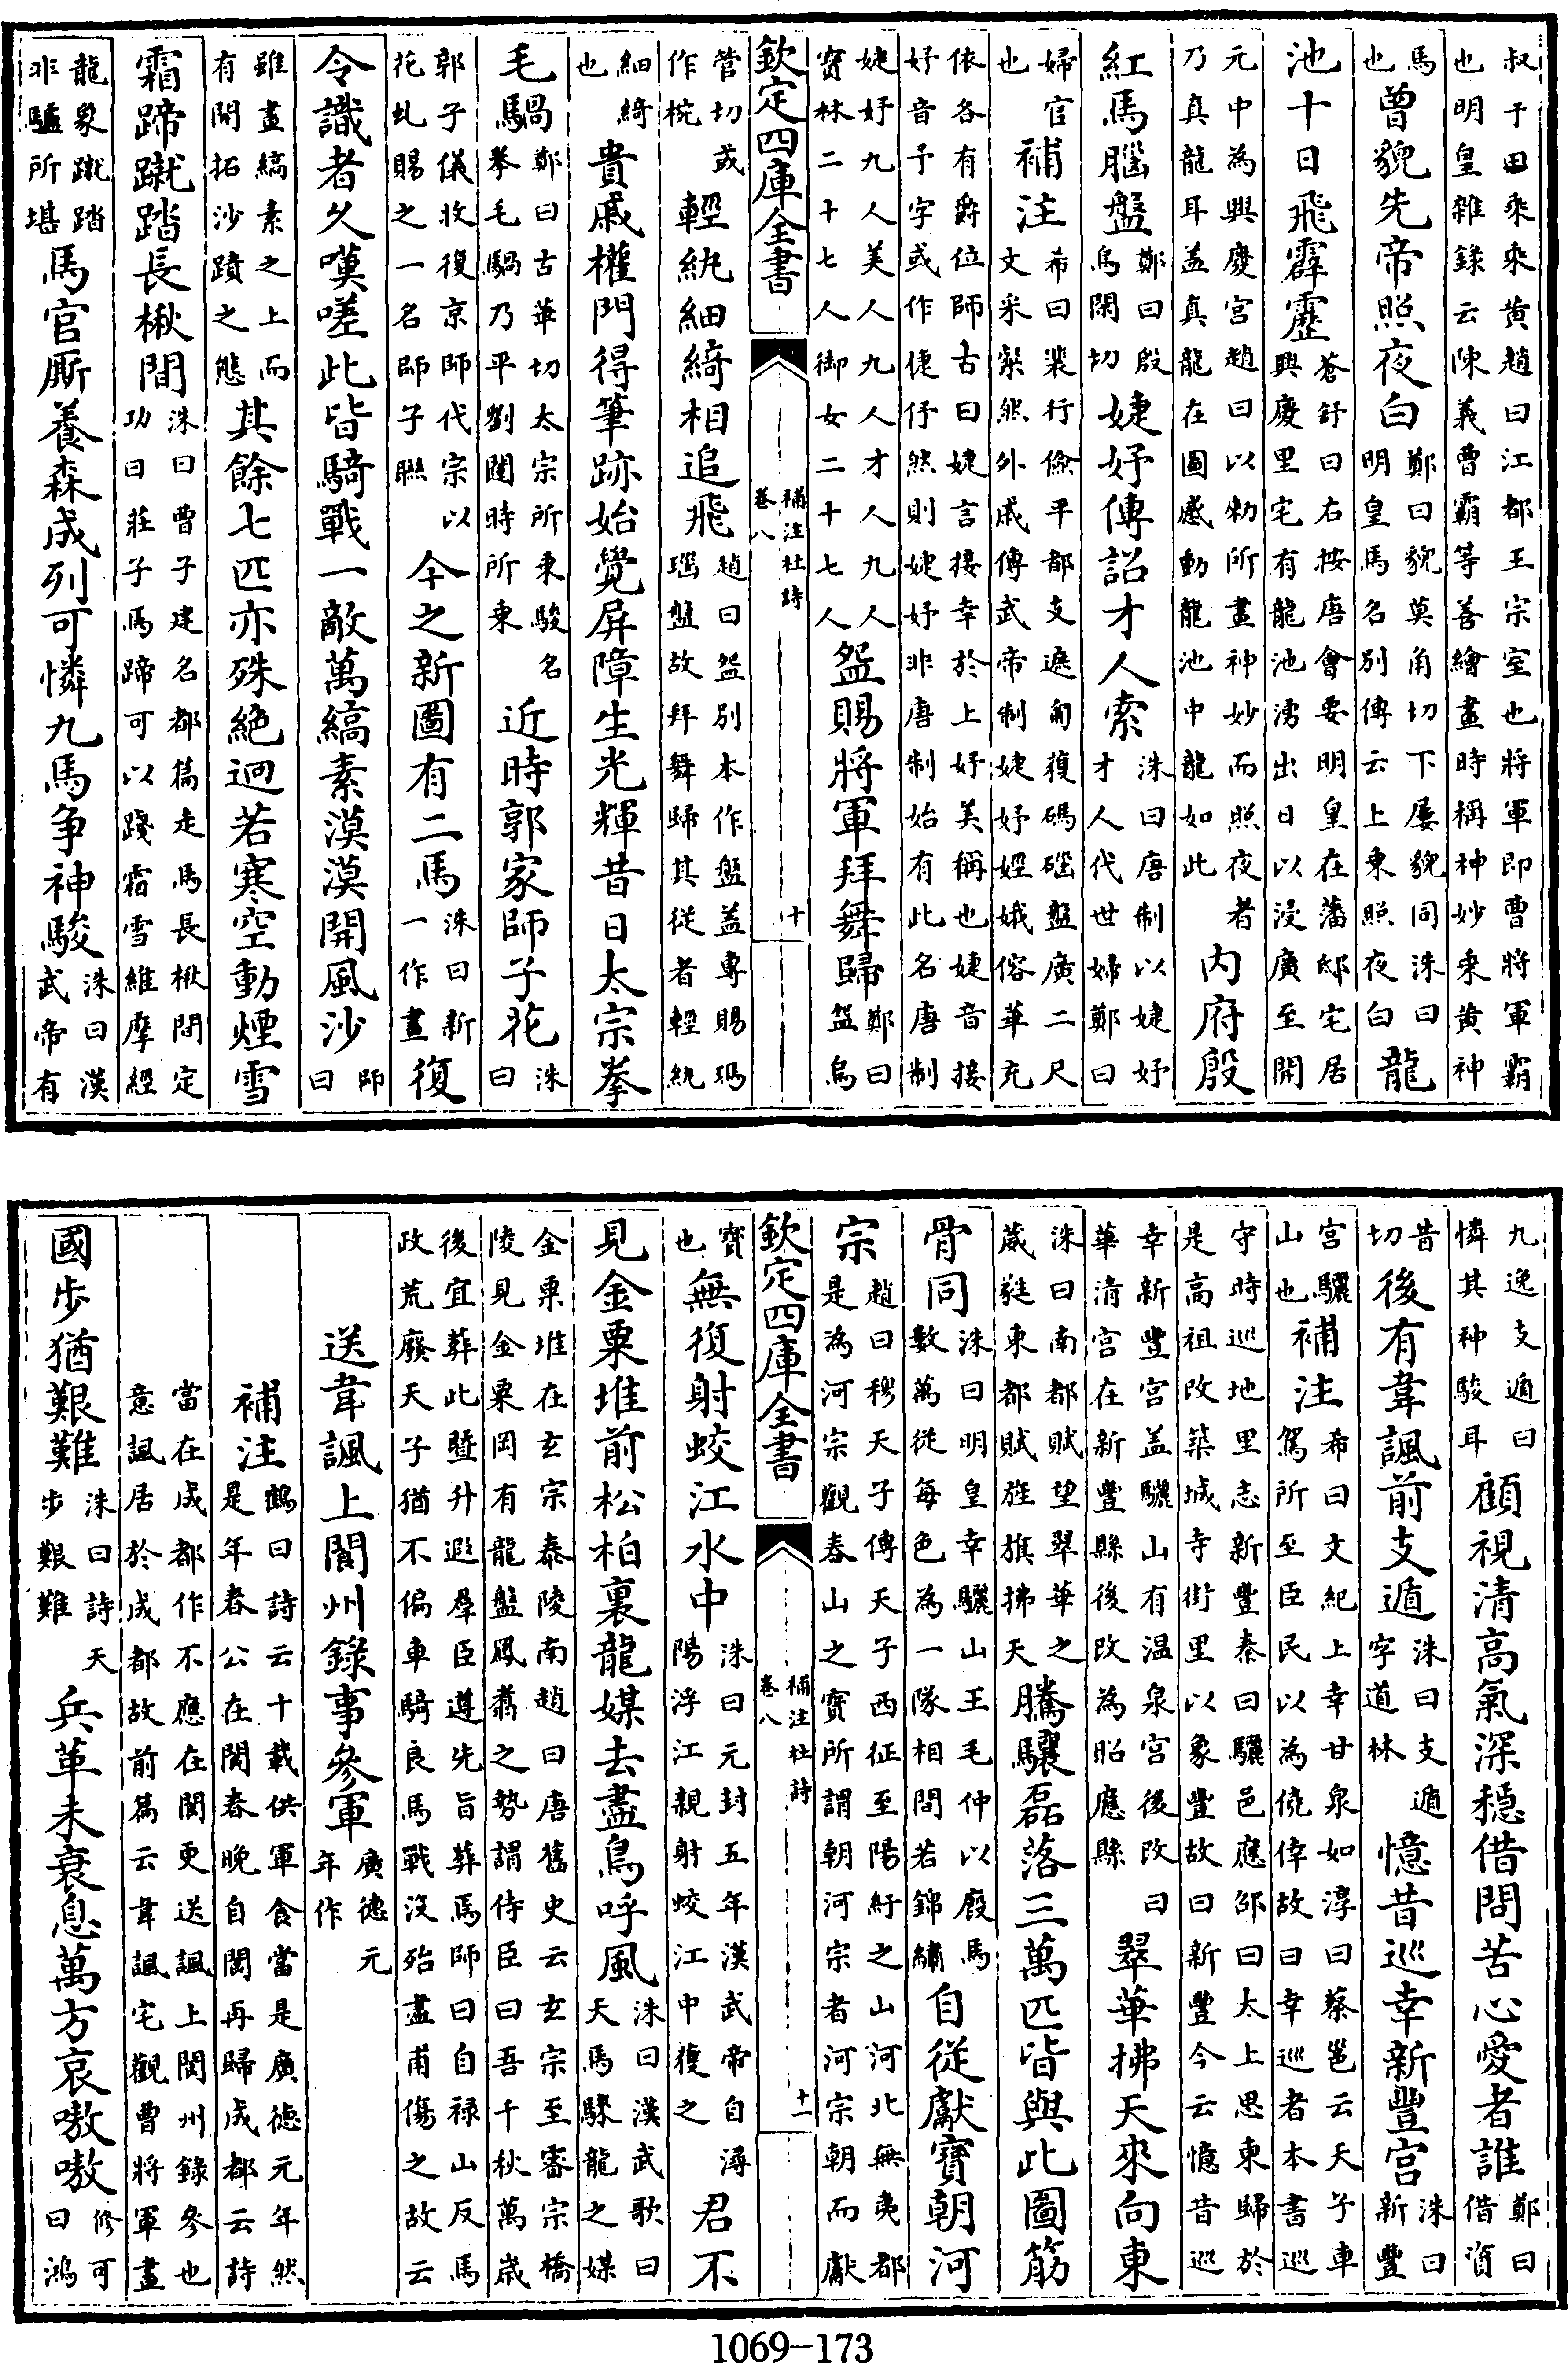 叔于田乘乘黄趙曰江都王宗室也將軍即曹將軍霸
也明皇雜錄云陳義曹霸等善繪畫時稱神妙乘黄神
馬也曾貌先帝照夜白鄭曰貌莫角切下屡貌同洙曰明皇馬名別傳云上乘照夜白龍
池十日飛霹靂蒼舒曰右按唐會要明皇在藩邸宅居興慶里宅有龍池湧出日以浸廣至開
元中為興慶宫趙曰以勑所畫神妙而照夜者乃真龍耳盖真龍在圖感動龍池中龍如此内府殷
紅馬腦盤鄭曰殷烏閑切婕妤傳詔才人索洙曰唐制以婕妤才人代世婦鄭曰
婦官也補注希曰裴行儉平都支遮匐復碼碯盤廣二尺文采粲然外戚傳武帝制婕妤娙娥傛華充
依各有爵位師古曰婕言接幸於上妤美稱也婕音接
妤音予字或作倢伃然則婕妤非唐制始有此名唐制
婕妤九人美人九人才人九人寶林二十七人御女二十七人盌賜將軍拜舞歸鄭曰盌烏
欽定四庫全書 補注杜詩卷八 十
管切或作椀輕紈細綺相追飛趙曰盌別本作盤盖專賜瑪瑙盤故拜舞歸其從者輕紈
細綺也貴戚權門得筆跡始覺屏障生光輝昔日太宗拳
毛騧鄭曰古華切太宗所乘駿名拳毛騧乃平劉闥時所乘近時郭家師子花洙曰
郭子儀收復京師代宗以花虬賜之一名師子聯今之新圖有二馬洙曰新一作畫復
令識者久嘆嗟此皆騎戰一敵萬縞素漠漠開風沙師曰
雖畫縞素之上而有開拓沙蹟之態其餘七匹亦殊絶迥若寒空動煙雪
霜蹄蹴踏長楸間洙曰曹子建名都篇走馬長楸間定功曰莊子馬蹄可以踐霜雪維摩經
龍象蹴踏非驢所堪馬官厮養森成列可憐九馬争神駿洙曰漢武帝有
九逸支遁曰憐其神駿耳顧視清高氣深穩借問苦心愛者誰鄭曰借資
昔切後有韋諷前支遁洙曰支遁字道林憶昔巡幸新豐宫洙曰新豐
宫驪山也補注希曰文紀上幸甘泉如淳曰蔡邕云天子車駕所至臣民以為僥倖故曰幸巡者本書巡
守時巡地里志新豐秦曰驪邑應邵曰太上思東歸於
是高祖改築城寺街里以象豐故曰新豐今云憶昔巡
幸新豐宫盖驪山有温泉宫後改曰華清宫在新豐縣後改為昭應縣翠華拂天來向東
洙曰南都賦望翠華之葳蕤東都賦旌旗拂天騰驤磊落三萬匹皆與此圖筋
骨同洙曰明皇幸驪山王毛仲以廐馬數萬從每色為一隊相間若錦繡自從獻寶朝河
宗趙曰穆天子傳天子西征至陽紆之山河北無夷都是為河宗觀春山之寶所謂朝河宗者河宗朝而獻
欽定四庫全書 補注杜詩卷八 十一
寶也無復射蛟江水中洙曰元封五年漢武帝自潯陽浮江親射蛟江中獲之君不
見金粟堆前松柏裏龍媒去盡鳥呼風洙曰漢武歌曰天馬騋龍之媒
金粟堆在玄宗泰陵南趙曰唐舊史云玄宗至睿宗橋
陵見金粟岡有龍盤鳳翥之勢謂侍臣曰吾千秋萬歲
後宜葬此暨升遐羣臣遵先旨葬馬師曰自禄山反馬
政荒廢天子猶不偏車騎良馬戰沒殆盡甫傷之故云
送韋諷上閬州錄事參軍廣德元年作
補注鶴曰詩云十載供軍食當是廣德元年然是年春公在閬春晚自閬再歸成都云詩
當在成都作不應在閬更送諷上閬州錄參也
意諷居於成都故前篇云韋諷宅觀曹將軍畫
國步猶艱難洙曰詩天步艱難兵革未衰息萬方哀嗷嗷修可曰鴻
1069-173